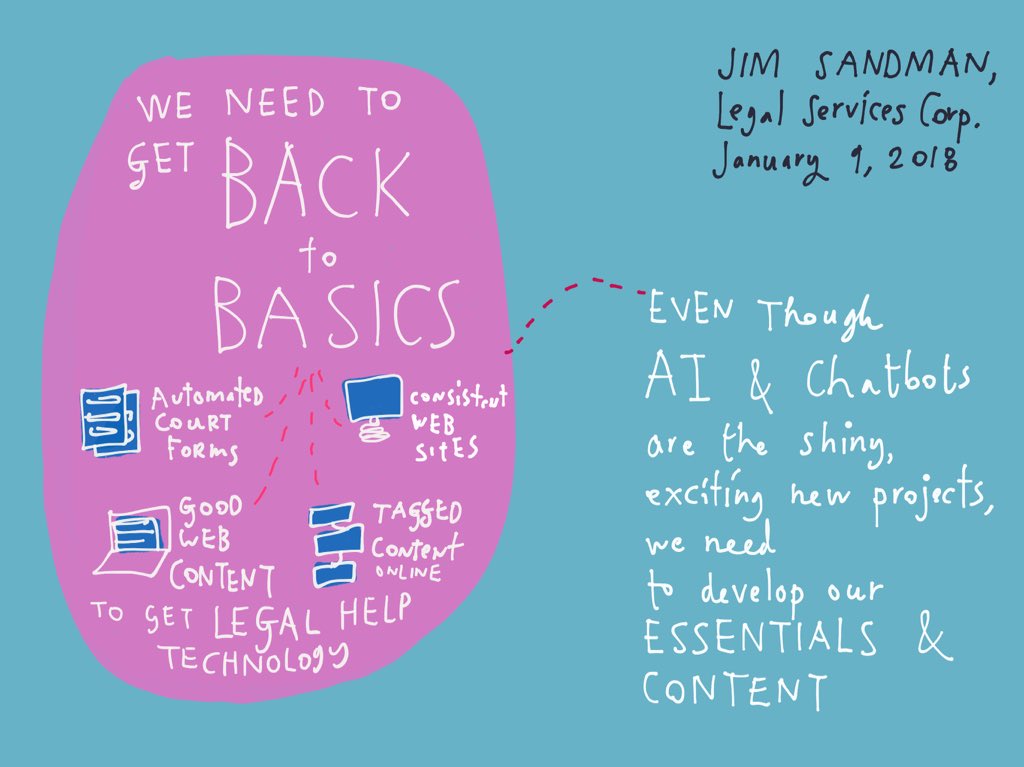 WE NEED TO
GET BACK
to
BASICS
AUTOMATED
COURT
FORMS
CONSISTENT
WEB
SITES
GOOD
WEB
CONTENT
TAGGED
Content
ONLINE
TO GET LEGAL HELP
TECHNOLOGY
JIM SANDMAN,
Legal Services Corp.
January 9, 2018
EVEN Though
AI & Chatbots
are the shiny,
exciting new projects,
we need
to develop our
ESSENTIALS &
CONTENT